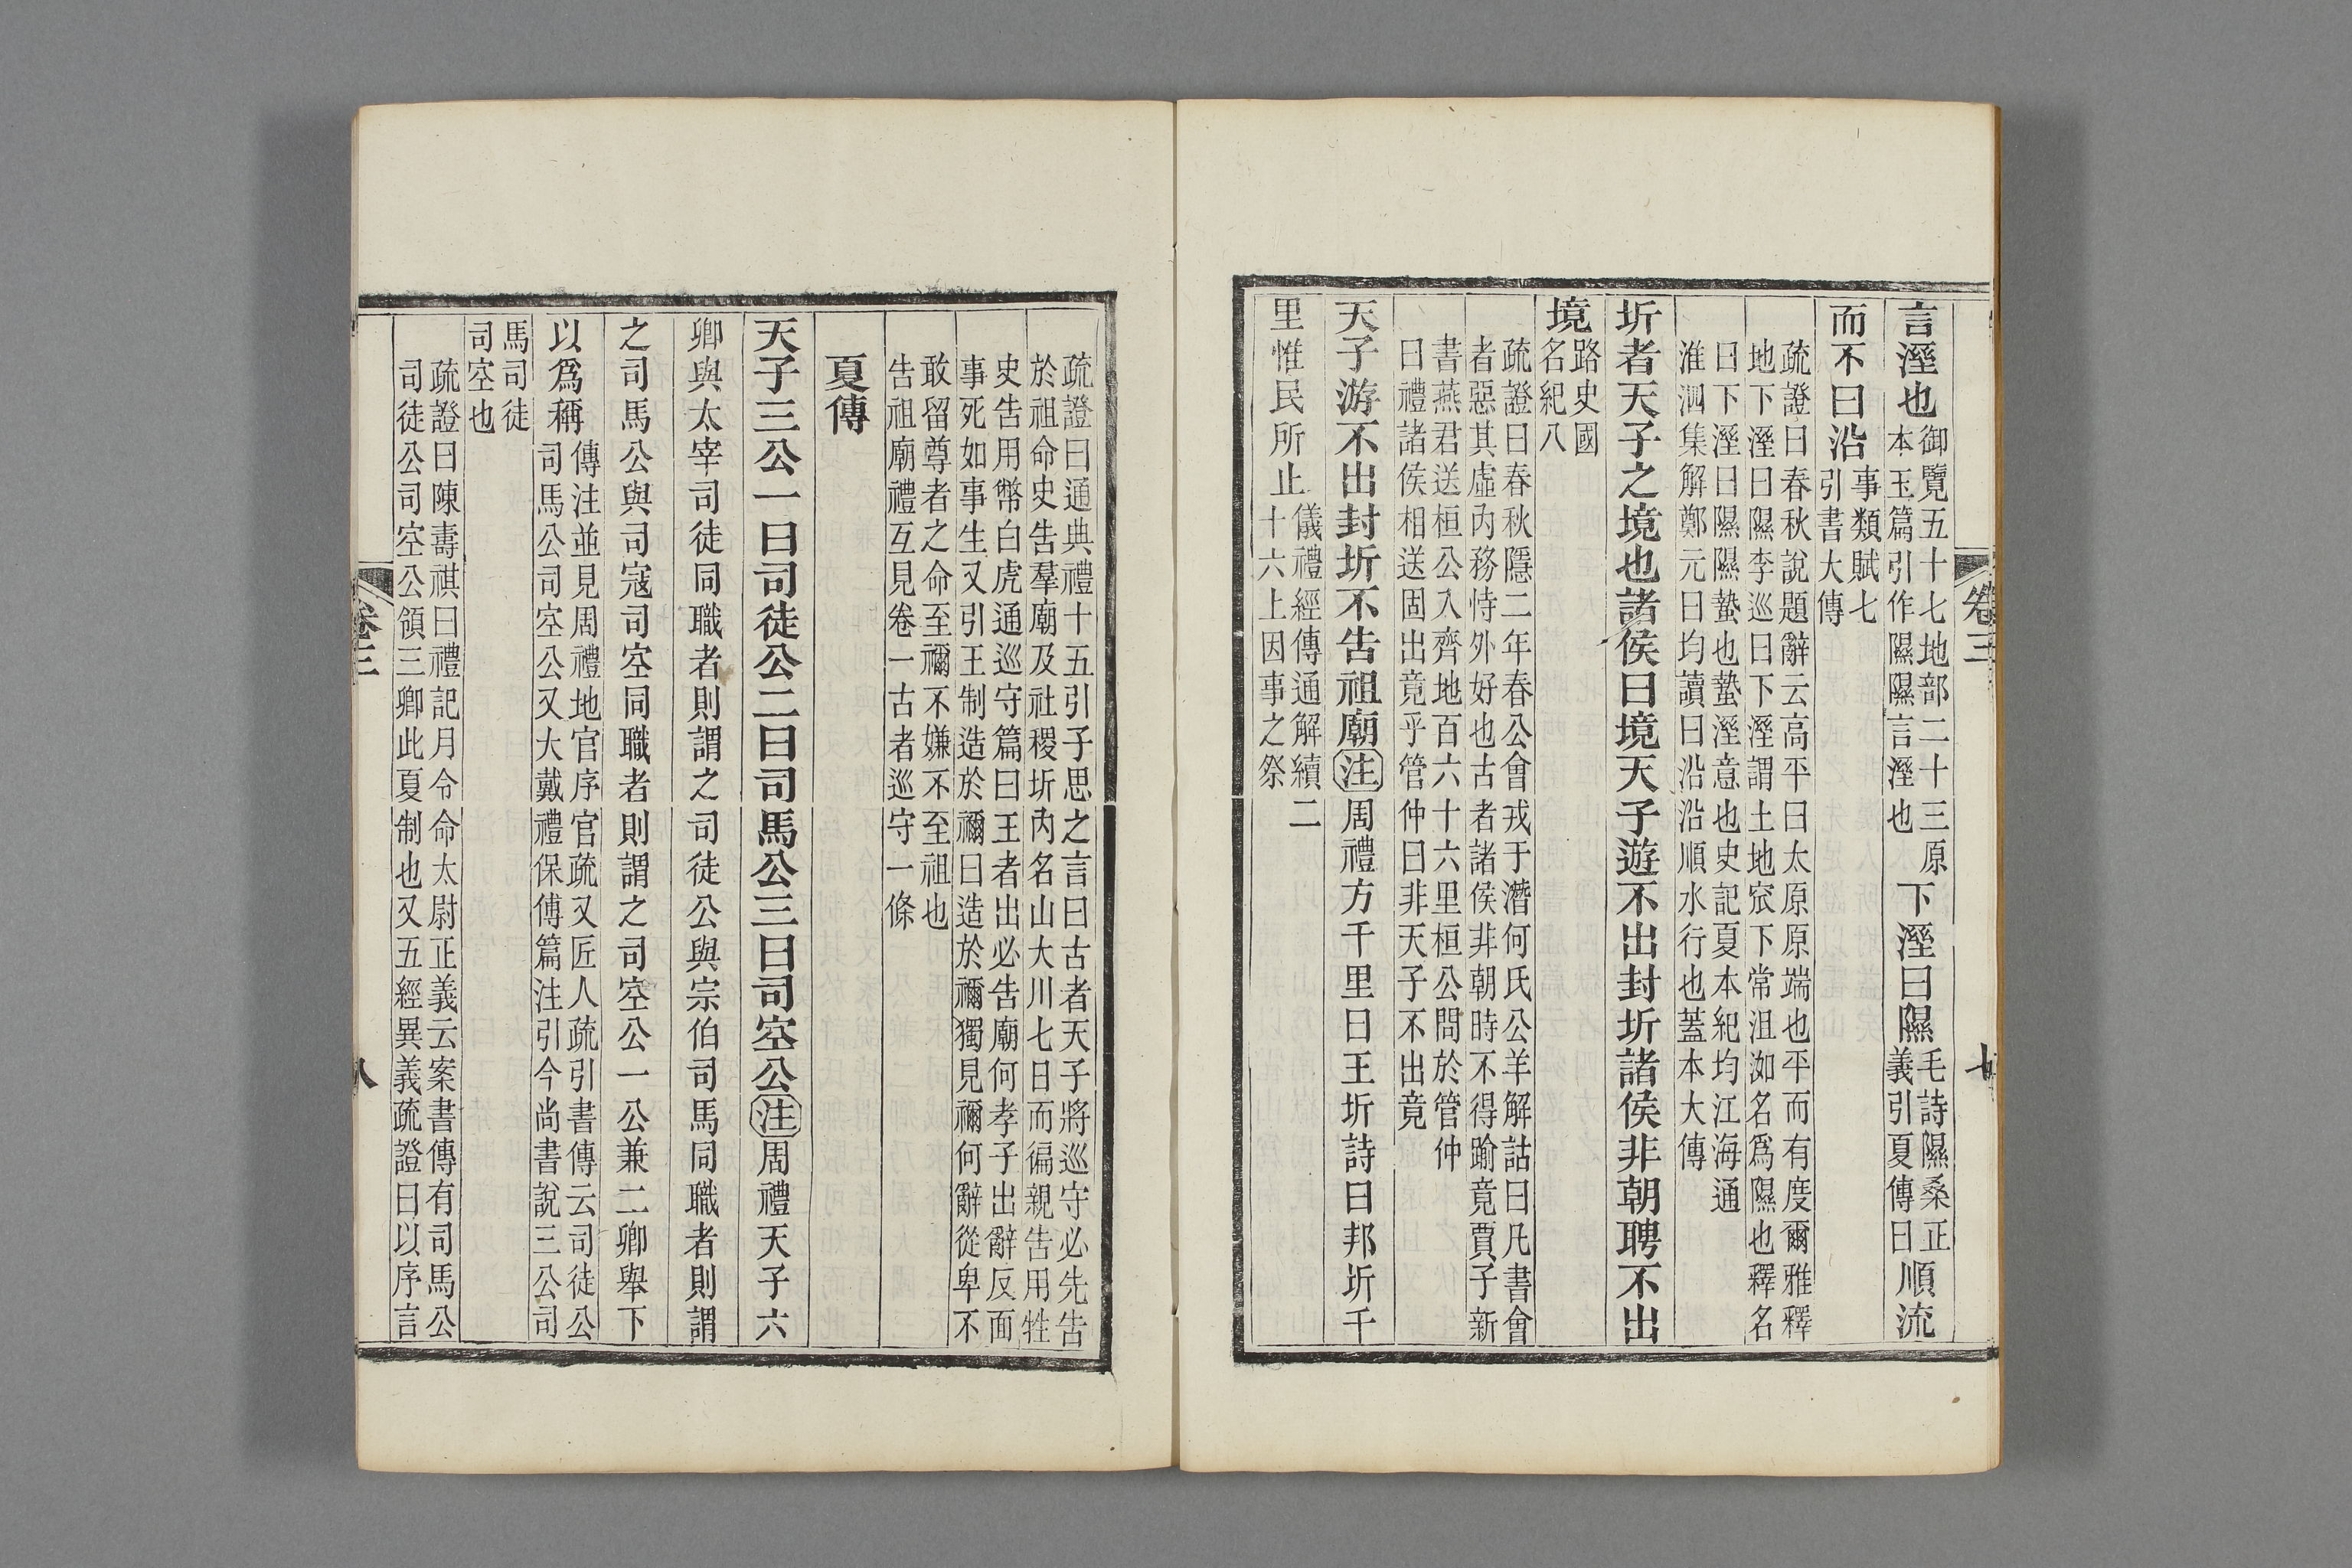 卷三 七
言溼也御覽五十七地部二十三原
本玉篇引作隰隰言溼也下溼曰隰毛詩隰桑正
義引夏傳曰順流
而不曰沿事類賦七
引書大傳
疏證曰春秋說題辭云高平曰太原原端也平而有度爾雅釋
地下溼曰隰李巡曰下溼謂土地窊下常沮洳名爲隰也釋名
曰下溼曰隰隰蟄也蟄溼意也史記夏本紀均江海通
淮泗集解鄭元曰均讀曰沿沿順水行也蓋本大傳
圻者天子之境也諸侯曰境天子遊不出封圻諸侯非朝聘不出
境路史國
名紀八
疏證曰春秋隱二年春公會戎于潛何氏公羊解詁曰凡書會
者惡其虛內務恃外好也古者諸侯非朝時不得踰竟賈子新
書燕君送桓公入齊地百六十六里桓公問於管仲
曰禮諸侯相送固出竟乎管仲曰非天子不出竟
天子游不出封圻不告祖廟注周禮方千里曰王圻詩曰邦圻千
里惟民所止儀禮經傳通解續二
十六上因事之祭
疏證曰通典禮十五引子思之言曰古者天子將巡守必先告
於祖命史告羣廟及社稷圻內名山大川七日而徧親告用牲
史告用幣白虎通巡守篇曰王者出必告廟何孝子出辭反面
事死如事生又引王制造於禰曰造於禰獨見禰何辭從卑不
敢留尊者之命至禰不嫌不至祖也
告祖廟禮互見卷一古者巡守一條
夏傳
天子三公一曰司徒公二曰司馬公三曰司空公注周禮天子六
卿與太宰司徒同職者則謂之司徒公與宗伯司馬同職者則謂
之司馬公與司寇司空同職者則謂之司空公一公兼二卿舉下
以爲稱傳注並見周禮地官序官疏又匠人疏引書傳云司徒公
司馬公司空公又大戴禮保傅篇注引今尚書說三公司
馬司徒
司空也
疏證曰陳壽祺曰禮記月令命太尉正義云案書傳有司馬公
司徒公司空公領三卿此夏制也又五經異義疏證曰以序言
卷三 八